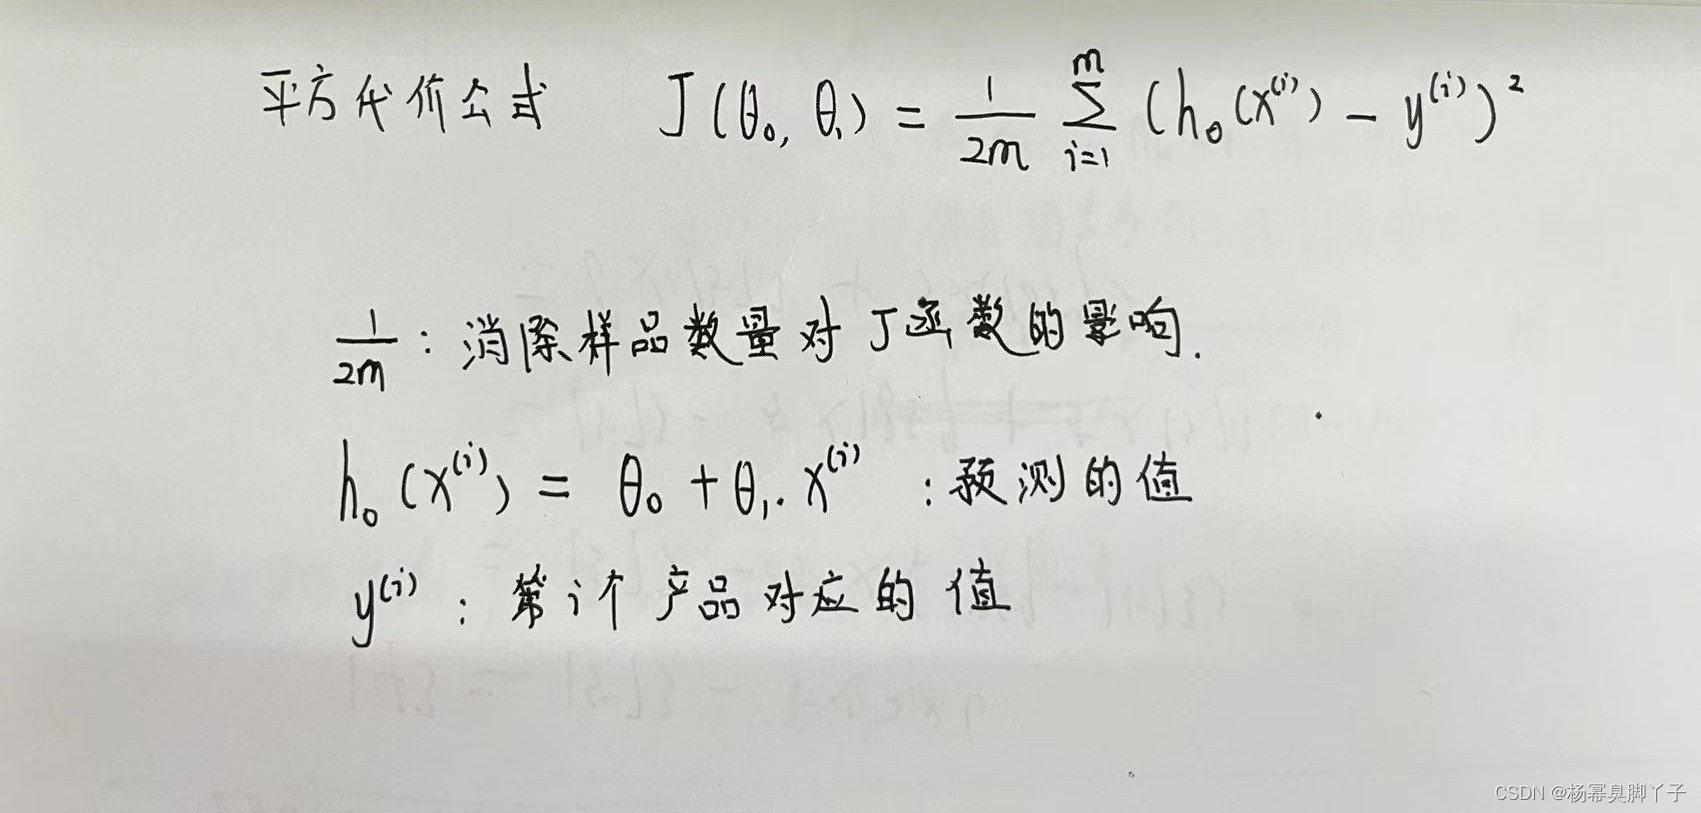 平方代价公式 J(θ₀, θ₁) = 1/2m ∑ᵢ₌₁ᵐ (h₀(x⁽ⁱ⁾) - y⁽ⁱ⁾)²
1/2m : 消除样品数量对J函数的影响.
h₀(x⁽ⁱ⁾) = θ₀ + θ₁·x⁽ⁱ⁾ : 预测的值
y⁽ⁱ⁾ : 第i个产品对应的值
CSDN @杨幂臭脚丫子